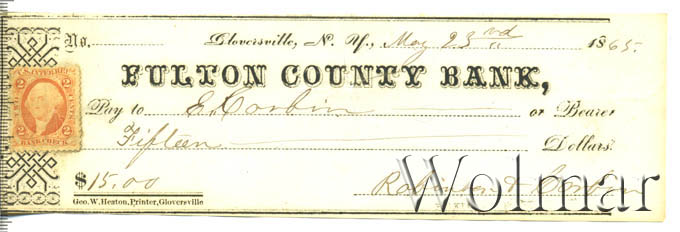 No. Gloversville, N. Y., May 23rd 1865.
FULTON COUNTY BANK,
U.S. INTER. REV.
2 2
BANK CHECK
Pay to E. Corbin or Bearer
Fifteen Dollars.
$15.00
Robinson & Corbin
Geo. W. Heaton, Printer, Gloversville
Wolmar